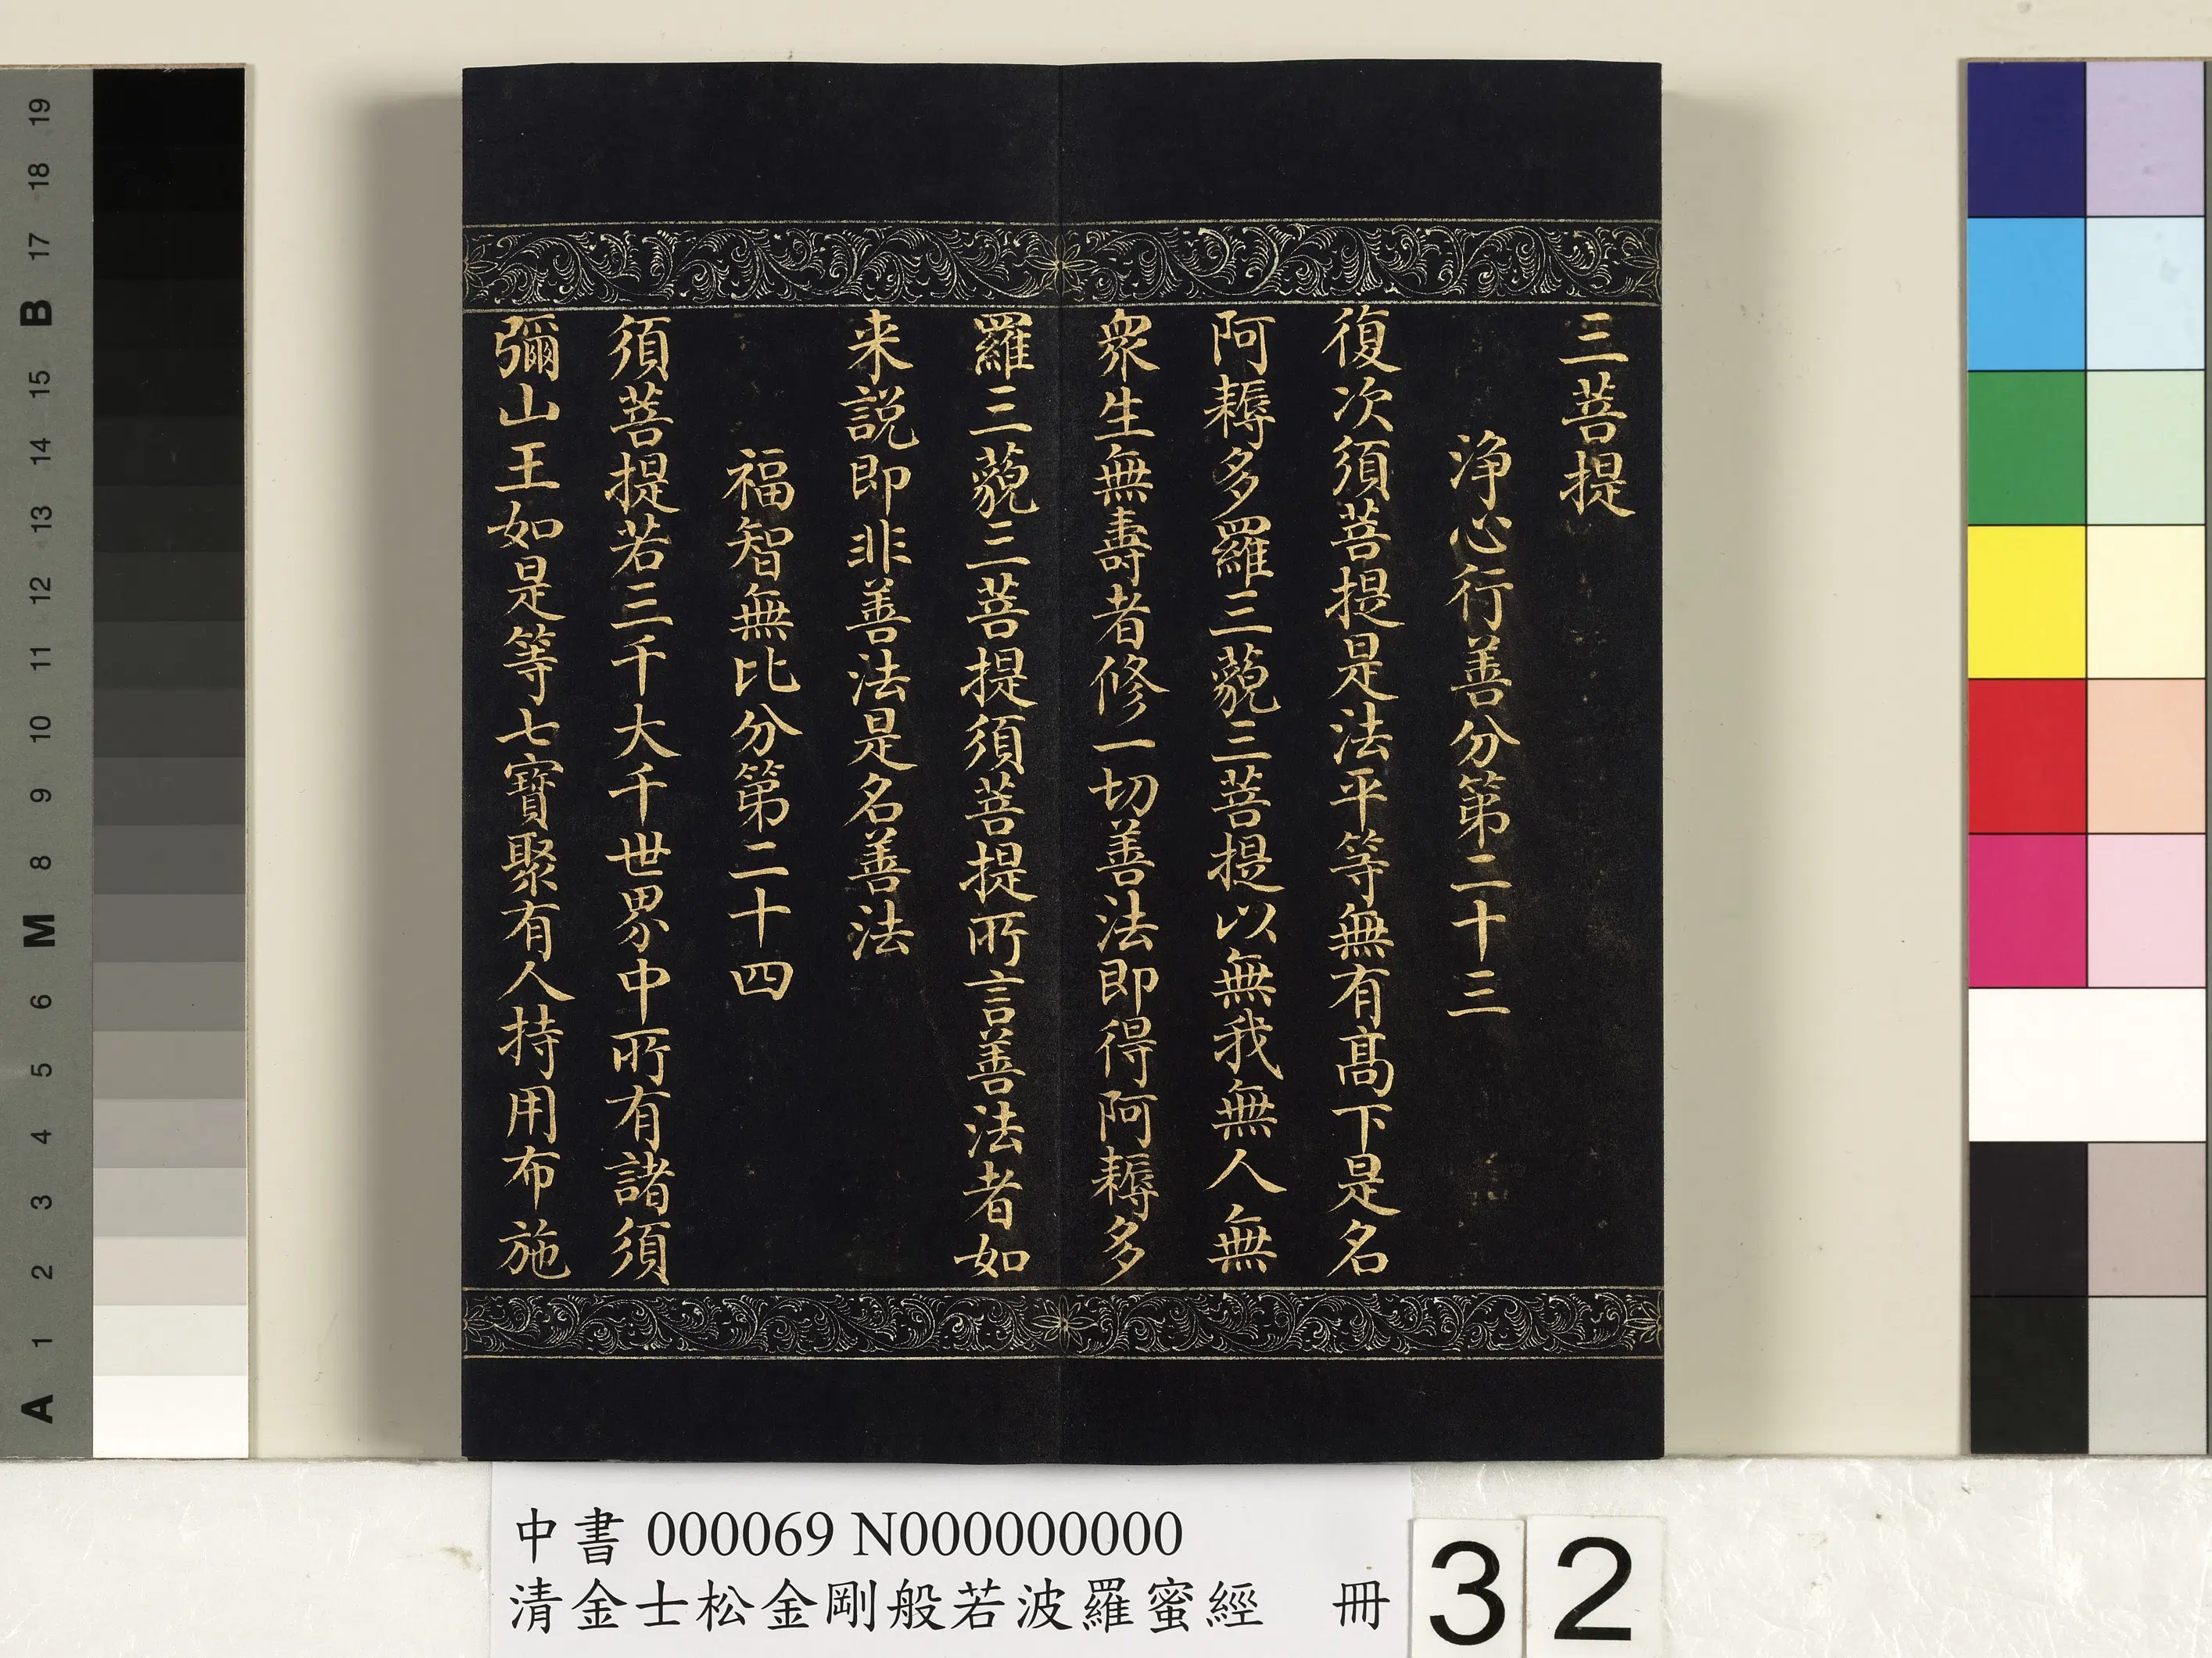 三菩提
淨心行善分第二十三
復次須菩提是法平等無有髙下是名
阿耨多羅三藐三菩提以無我無人無
衆生無壽者修一切善法即得阿耨多
羅三藐三菩提須菩提所言善法者如
来說即非善法是名善法
福智無比分第二十四
須菩提若三千大千世界中所有諸須
彌山王如是等七寶聚有人持用布施
中書 000069 N000000000
清金士松金剛般若波羅蜜經 冊
32
19
18
17
B
16
15
14
13
12
11
10
9
8
M
6
5
4
3
2
1
A